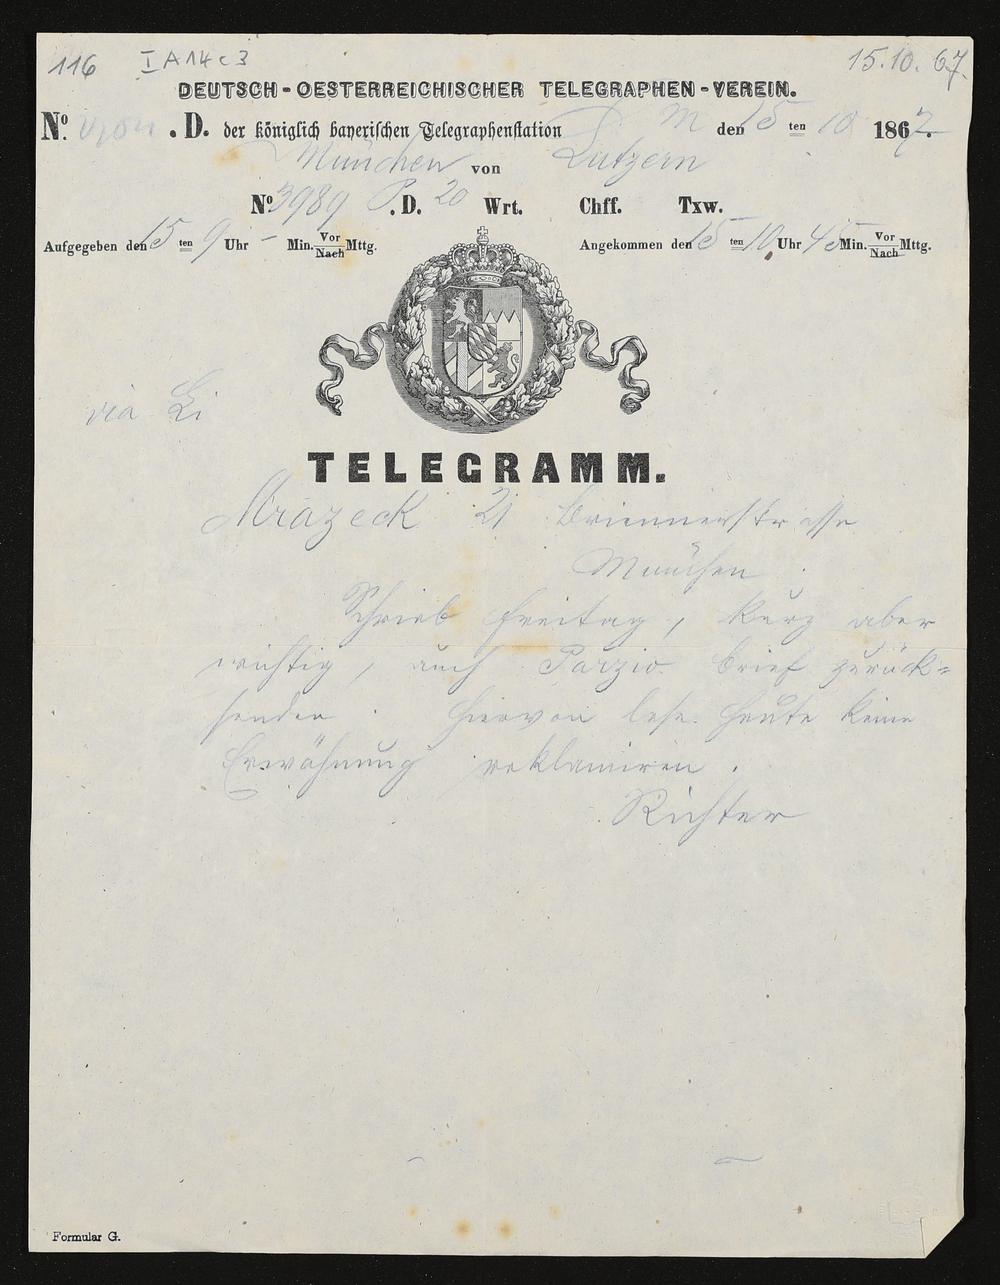 116 I A 14 c 3 15.10.67.
DEUTSCH-OESTERREICHISCHER TELEGRAPHEN-VEREIN.
No. .D. der königlich bayerischen Telegraphenstation M den 15 ten 10 1867.
München von Lutzern
No. 3989 P. D. 20 Wrt. Chff. Txw.
Aufgegeben den 15 ten 9 Uhr - Min. Vor/Nach Mttg. Angekommen den 15 ten 10 Uhr 45 Min. Vor/Nach Mttg.
via Li
TELEGRAMM.
Mrazeck 21 Briennerstrasse
München
Schrieb Freitag, kurz aber
wichtig, auch Porzio Brief zurück=
senden. Hiervon lese heute keine
Erwähnung reklamiren.
Richter
Formular G.